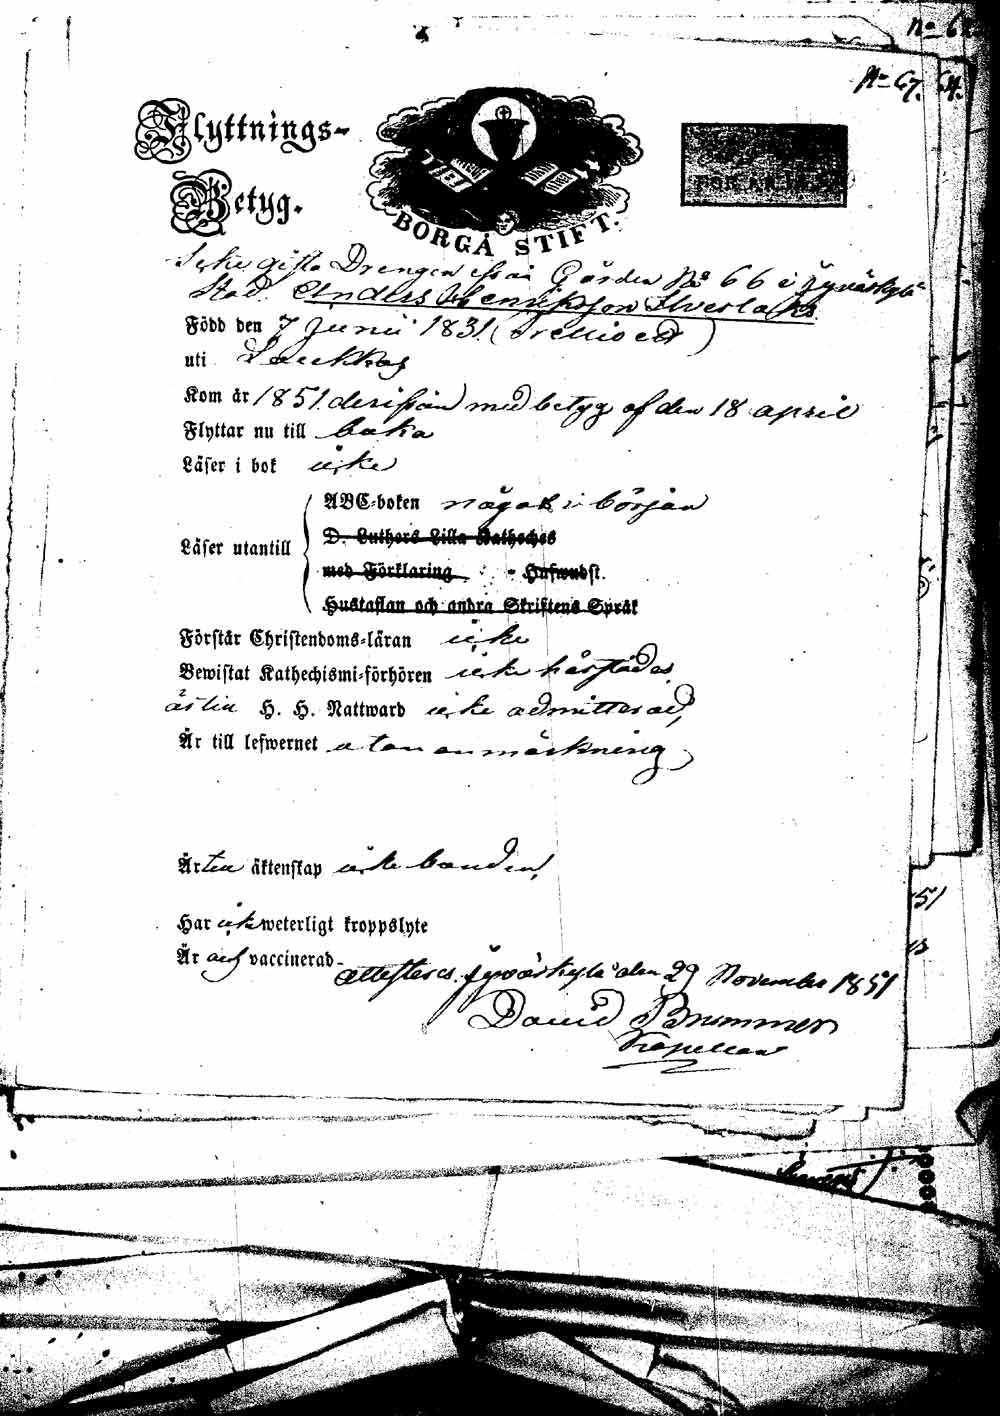 No 67.
64.
Flyttnings-
Betyg.
BORGÅ STIFT.
Icke gifta Drengen ifrån Gården No 66 i Jyväskylä
Stad Anders Henriksson
Född den 7 Junii 1831. (Trettioett)
uti Laukkas
Kom år 1851. derifrån med betyg af den 18 april
Flyttar nu till baka
Läser i bok icke
Läser utantill
ABC-boken något i början
D. Luthers Lilla Katheches
med Förklaring - Hufwudst.
Hustaflan och andra Skriftens Språk
Förstår Christendoms-läran icke
Bewistat Kathechismi-förhören icke härstädes
är till H. H. Nattward icke admitterad,
Är till lefwernet utan anmärkning
Är till äktenskap icke bunden,
Har ick weterligt kroppslyte
Är och vaccinerad-
attesteras. Jywäskylä den 29 November 1851
David Brummer
Kapellan